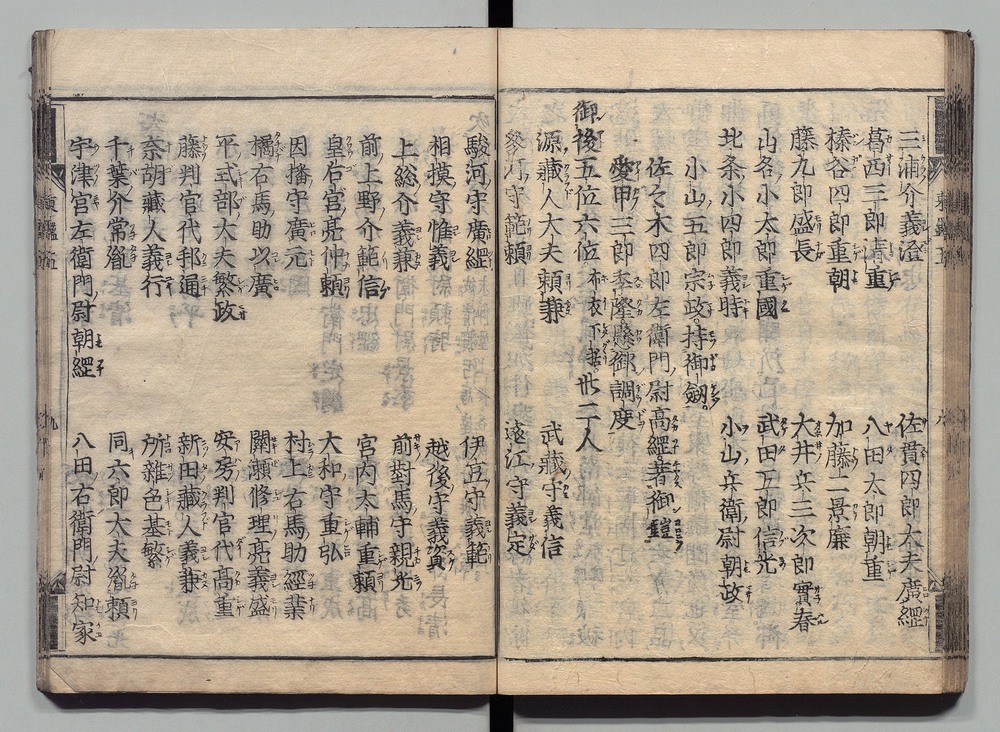 三浦介義澄　佐貫四郎大夫廣綱
葛西三郎清重　八田太郎朝重
榛谷四郎重朝　加藤二景廉
藤九郎盛長　大井兵三次郎實春
山名小太郎重國　武田五郎信光
北条小四郎義時　小山兵衛尉朝政
小山五郎宗政持御劔。
佐々木四郎左衛門尉高綱著御鎧
愛甲三郎季隆懸御調度
御後五位六位布衣下括卅二人
源藏人大夫頼兼　武藏守義信
參河守範頼　遠江守義定
駿河守廣綱　伊豆守義範
相摸守惟義　越後守義資
上総介義兼　前對馬守親光
前上野介範信　宮内大輔重頼
皇后宮亮仲頼　大和守重弘
因播守廣元　村上右馬助經業
橘右馬助以廣　關瀬修理亮義盛
平式部大夫繁政　安房判官代髙重
藤判官代邦通　新田藏人義兼
奈胡藏人義行　所雜色基繁
千葉介常胤　同六郎大夫胤頼
宇津宮左衛門尉朝綱　八田右衛門尉知家